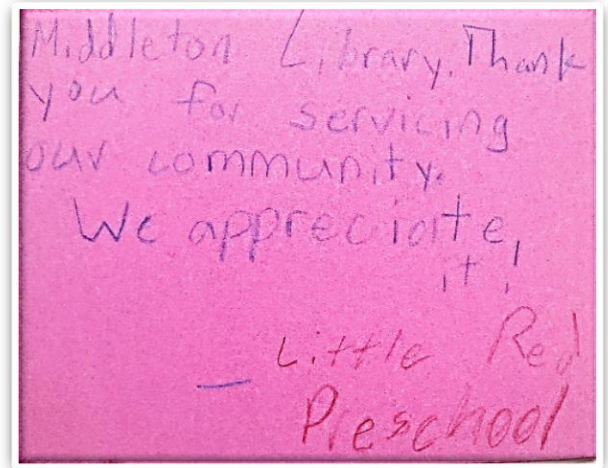 Middleton Library. Thank
you for servicing
our community.
We appreciate
it!
– Little Red
Preschool